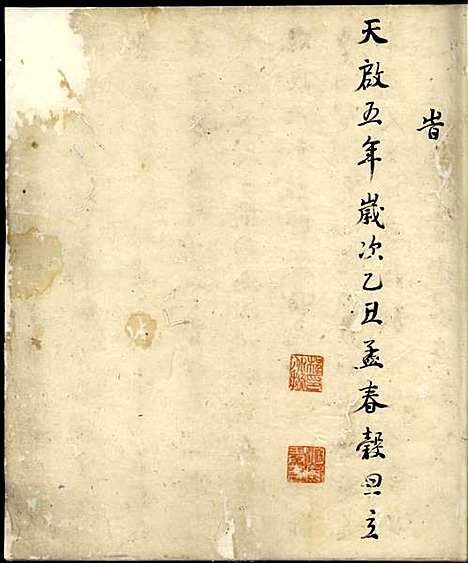 旹
天啟五年歲次乙丑孟春穀旦立